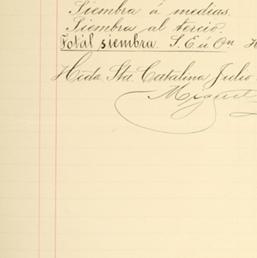 Siembra á medias.
Siembra al tercio.
Total siembra. S. E ú On
Hcda Sta Catalina Julio
Miguel